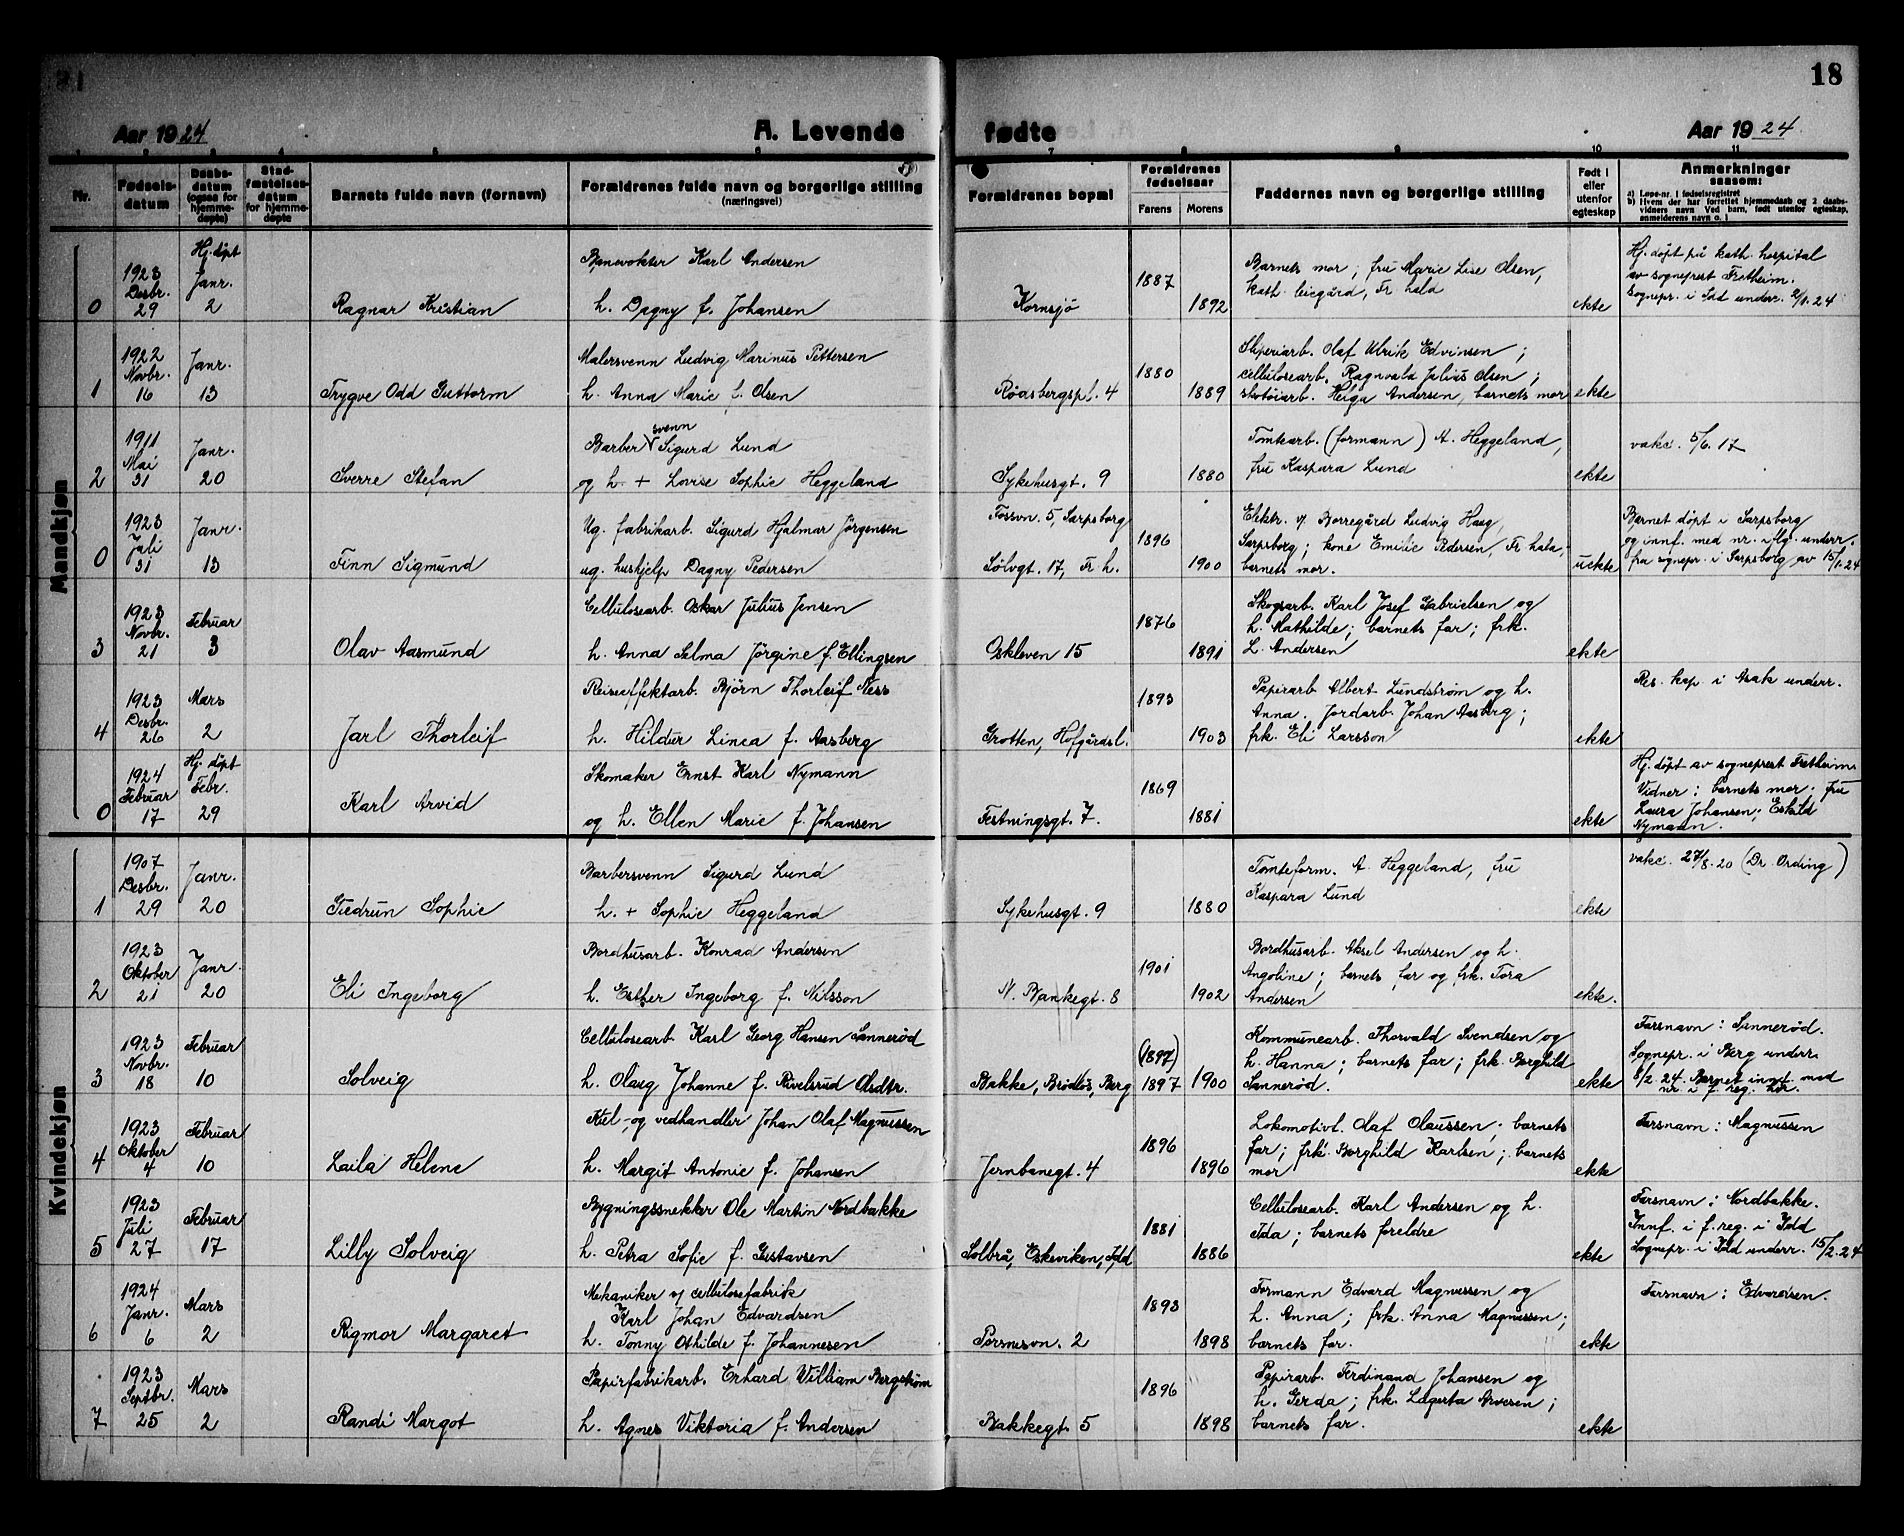 18
Aar 1924
A. Levende fødte
Aar 1924
Nr.
Fødsels-datum
Daabs-datum (ogsaa for hjemme-døpte)
Stad-fæstelses-datum for hjemme-døpte
Barnets fulde navn (fornavn)
Forældrenes fulde navn og borgerlige stilling (næringsvei)
Forældrenes bopæl
Forældrenes fødselsaar
Farens
Morens
Faddernes navn og borgerlige stilling
Født i eller utenfor egteskap
Anmerkninger saasom:
a) Løpe-nr. i fødselsregistret
b) Hvem der har forrettet hjemmedaab og 2 daabs-vidners navn Ved barn, født utenfor egteskap, anmelderens navn o. l
Mandkjøn
0 1923 Desbr. 29
Hj. döpt Janr. 2
Ragnar Kristian
Banevokter Karl Andersen
h. Dagny f. Johansen
Kornsjø
1887
1892
Barnets mor; fru Marie Lise Olsen,
kath. leiegård, Fr. hald
ekte
Hj. döpt på kath. hospital
av sogneprest Fretheim.
Sognepr. i Idd underr. 2/1.24
1 1922 Novbr. 16
Janr. 13
Trygve Odd Guttorm
Malersvenn Ludvig Marinus Pettersen
h. Anna Marie f. Olsen
Røasbergspl. 4
1880
1889
Sliperiarb. Olaf Ulrik Edvinsen;
cellulosearb. Ragnvald Julius Olsen;
skotöiarb. Helga Andersen, barnets mor
ekte
2 1911 Mai 31
Janr. 20
Sverre Stefan
Barbersvenn Sigurd Lund
og h. + Lovise Sophie Heggeland
Sykehusgt. 9
1880
Tomtearb. (formann) A. Heggeland,
fru Kaspara Lund
ekte
vakc. 5/6.17
0 1923 Juli 31
Janr. 13
Finn Sigmund
Ug. fabrikarb. Sigurd Hjalmar Jörgensen
ug. hushjelp Dagny Pedersen
Fossvn. 5, Sarpsborg
Sölvgt. 17, Fr. h.
1896
1900
Elektr. v/ Borregård Ludvig Haag,
Sarpsborg; kone Emilie Pedersen, Fr. hald;
barnets mor.
uekte
Barnet döpt i Sarpsborg
og innf. med nr. iflg. underr.
fra sognepr. i Sarpsborg av 15/1.24
3 1923 Novbr. 21
Februar 3
Olav Aasmund
Cellulosearb. Oskar Julius Jensen
h. Anna Selma Jörgine f. Ellingsen
Oskleven 15
1876
1891
Skogsarb. Karl Josef Gabrielsen og
h. Mathilde; barnets far; frk.
L. Andersen
ekte
4 1923 Desbr. 26
Mars 2
Jarl Thorleif
Reiseeffektarb. Björn Thorleif Ness
h. Hildur Linea f. Aasberg
Grotten, Hofgårdsl.
1893
1903
Papirarb. Albert Lundström og h.
Anna. Jordarb. Johan Aasberg;
frk. Eli Larsson
ekte
Res. kap. i Asak underr.
0 1924 Februar 17
Hj. döpt Febr. 29
Karl Arvid
Skomaker Ernst Karl Nymann
og h. Ellen Marie f. Johansen
Festningsgt. 7.
1869
1881
ekte
Hj. döpt av sogneprest Fretheim
Vidner: barnets mor; fru
Laura Johansen; Eskild
Nymann.
Kvindekjøn
1 1907 Desbr. 29
Janr. 20
Gudrun Sophie
Barbersvenn Sigurd Lund
h. + Sophie Heggeland
Sykehusgt. 9
1880
Tomteform. A. Heggeland, fru
Kaspara Lund
ekte
vakc. 27/8.20 (Dr. Ording)
2 1923 Oktober 21
Janr. 20
Eli Ingeborg
Bordhusarb. Konrad Andersen
h. Esther Ingeborg f. Nilsson
N. Bankegt. 8
1901
1902
Bordhusarb. Aksel Andersen og h.
Angoline; barnets far og frk. Tora
Andersen
ekte.
3 1923 Novbr. 18
Februar 10
Solveig
Cellulosearb. Karl Georg Hansen Sannerød
h. Olaug Johanne f. Rivelsrud Olsdtr.
Bakke, Brödlös, Berg
(1897)
1897
1900
Kommunearb. Thorvald Svendsen og
h. Hanna; barnets far; frk. Borghild
Sannerød.
ekte
Farsnavn: Sannerød.
Sognepr. i Berg underr.
8/2.24. Barnet innf. med
nr. i f. reg. her.
4 1923 Oktober 4
Februar 10
Laila Helene
Kul-, og vedhandler Johan Olaf Magnussen
h. Margit Antonie f. Johansen
Jernbanegt. 4
1896
1896
Lokomotivl. Olaf Olaussen; barnets
far; frk. Borghild Karlsen; barnets
mor
ekte
Farsnavn: Magnussen
5 1923 Juli 27
Februar 17
Lilly Solveig
Bygningssnekker Ole Martin Nordbakke
h. Petra Sofie f. Gustavsen
Solbrå, Eskeviken, Idd
1881
1886
Cellulosearb. Karl Andersen og h.
Ida; barnets foreldre
ekte
Farsnavn: Nordbakke.
Innf. i f. reg. i Idd
Sognepr. i Idd underr. 15/2.24
6 1924 Janr. 6
Mars 2
Rigmor Margaret
Mekaniker v/ cellulosefabrik
Karl Johan Edvardsen
h. Tonny Othilde f. Johannesen
Porsnesvn. 2
1893
1898
Formann Edvard Magnussen og
h. Anna; frk. Anna Magnussen;
barnets far.
ekte
Farsnavn: Edvardsen.
7 1923 Septbr. 25
Mars 2
Randi Margot
Papirfabrikarb. Erhard William Bergström
h. Agnes Viktoria f. Andersen
Bakkegt. 5
1896
1898
Papirarb. Ferdinand Johansen og
h. Gerda; frk. Lagerta Arvesen;
barnets far.
ekte